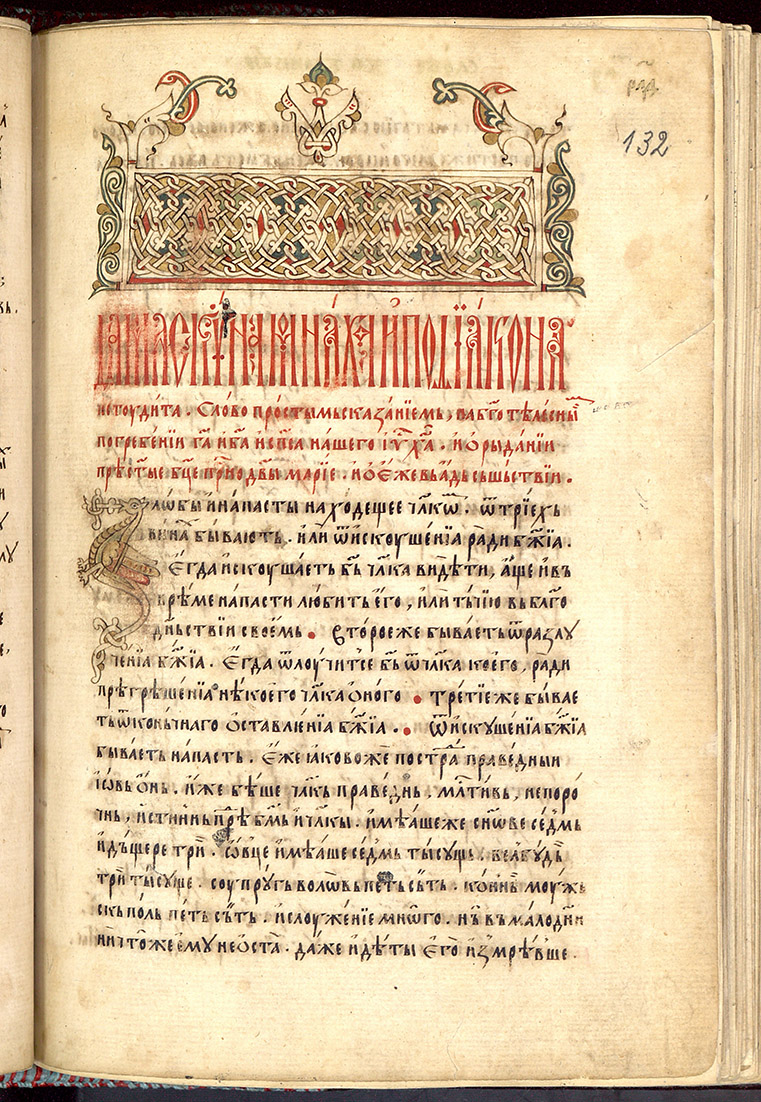 132
дамаскꙋ́на мона́ха и҆ ипо́дїа́кона
и҆стоудита. Сло́во просты́мь сказа́нїемь, на бг҃отѣле́сны̏
погребе́нїи гⷭ҇а и҆ б҃а и҆ сп҃са на́шего і҆ꙋ хⷭ҇а. и҆ о҆ рыда́нїи
прѣⷭ҇тые бц҃е при́но дв҃ы марі́е. и҆ о҆ е҆́же вь а҆дь сьше́ствїи.
Ѕлѡбы и҆ напасты находещее чл҃кѡ. ѿ трїехь
вина̀ быва́ють. и҆лѝ ѿ искоушенїа ра́ди бж҃їа.
Е҆гда искоуша́еть бь҃ чл҃ка ви́дѣти, а҆́ще и҆ вь
врѣме напасти любить е҆го̀, и҆лѝ тьчїю вь бл҃го
дньствїи свое́мь. Второе же быва́еть ѿ разлꙋ
че́нїа бж҃їа. Е҆гда ѿлоучи́тсе бь҃ ѿ чл҃ка кое́го, ра́ди
прѣгрѣше́нїа нѣ́коего чл҃ка о҆ного. трети́е же быва́е
ть ѿ коньчнаго о҆ставле́нїа бж҃їа. ѿ искꙋше́нїа бж҃їа
быва́еть напасть. Е҆́же ꙗ҆ковоже постра̀ пра́ве́дныи
і҆ѡ́вь о҆́нь. и҆́же бѣ́ше чл҃кь праве́днь, млⷭ҇тивь, непоро́
чнь, и҆стиннь прѣ́ бм҃ь и҆ чл҃кы. и҆мѣ́аше же сн҃ове се́дмь
и҆ дьщере трѝ. ѡ҆́вце и҆мѣ́аше се́дмь ты́сꙋщь. вельбꙋ́дь
трѝ ты́сꙋще. соупрꙋ́гь волѡ́вь пе́ть сьть. ко́ннь моу́жь
скь поль пе́ть сть. и҆ слоуже́нїе мнѡ́го. нь̏ вь ма́ло дни
ничто́же е҆мꙋ не о҆ста̀. да́же и҆ дѣ́ты е҆го̀ и҆змрѣ́вше.